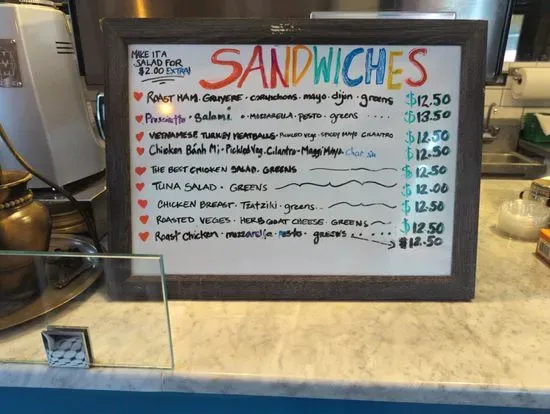 MAKE IT A
SALAD FOR
$2.00 EXTRA!
SANDWICHES
ROAST HAM. GRUYERE. CORNICHONS. MAYO. DIJON. GREENS $12.50
Prosciutto. Salami. MOZZARELLA. PESTO. greens $13.50
VIETNAMESE TURKEY MEATBALLS. PICKLED VEG. SPICY MAYO. CILANTRO $12.50
Chicken Bánh Mi. Pickled Veg. Cilantro. Maggi Mayo. Char siu $12.50
THE BEST CHICKEN SALAD. GREENS $12.50
TUNA SALAD. GREENS $12.00
CHICKEN BREAST. TZATZIKI. greens. $12.50
ROASTED VEGGIES. HERB GOAT CHEESE. GREENS $12.50
Roast Chicken. mozzarella. Pesto. greens $12.50